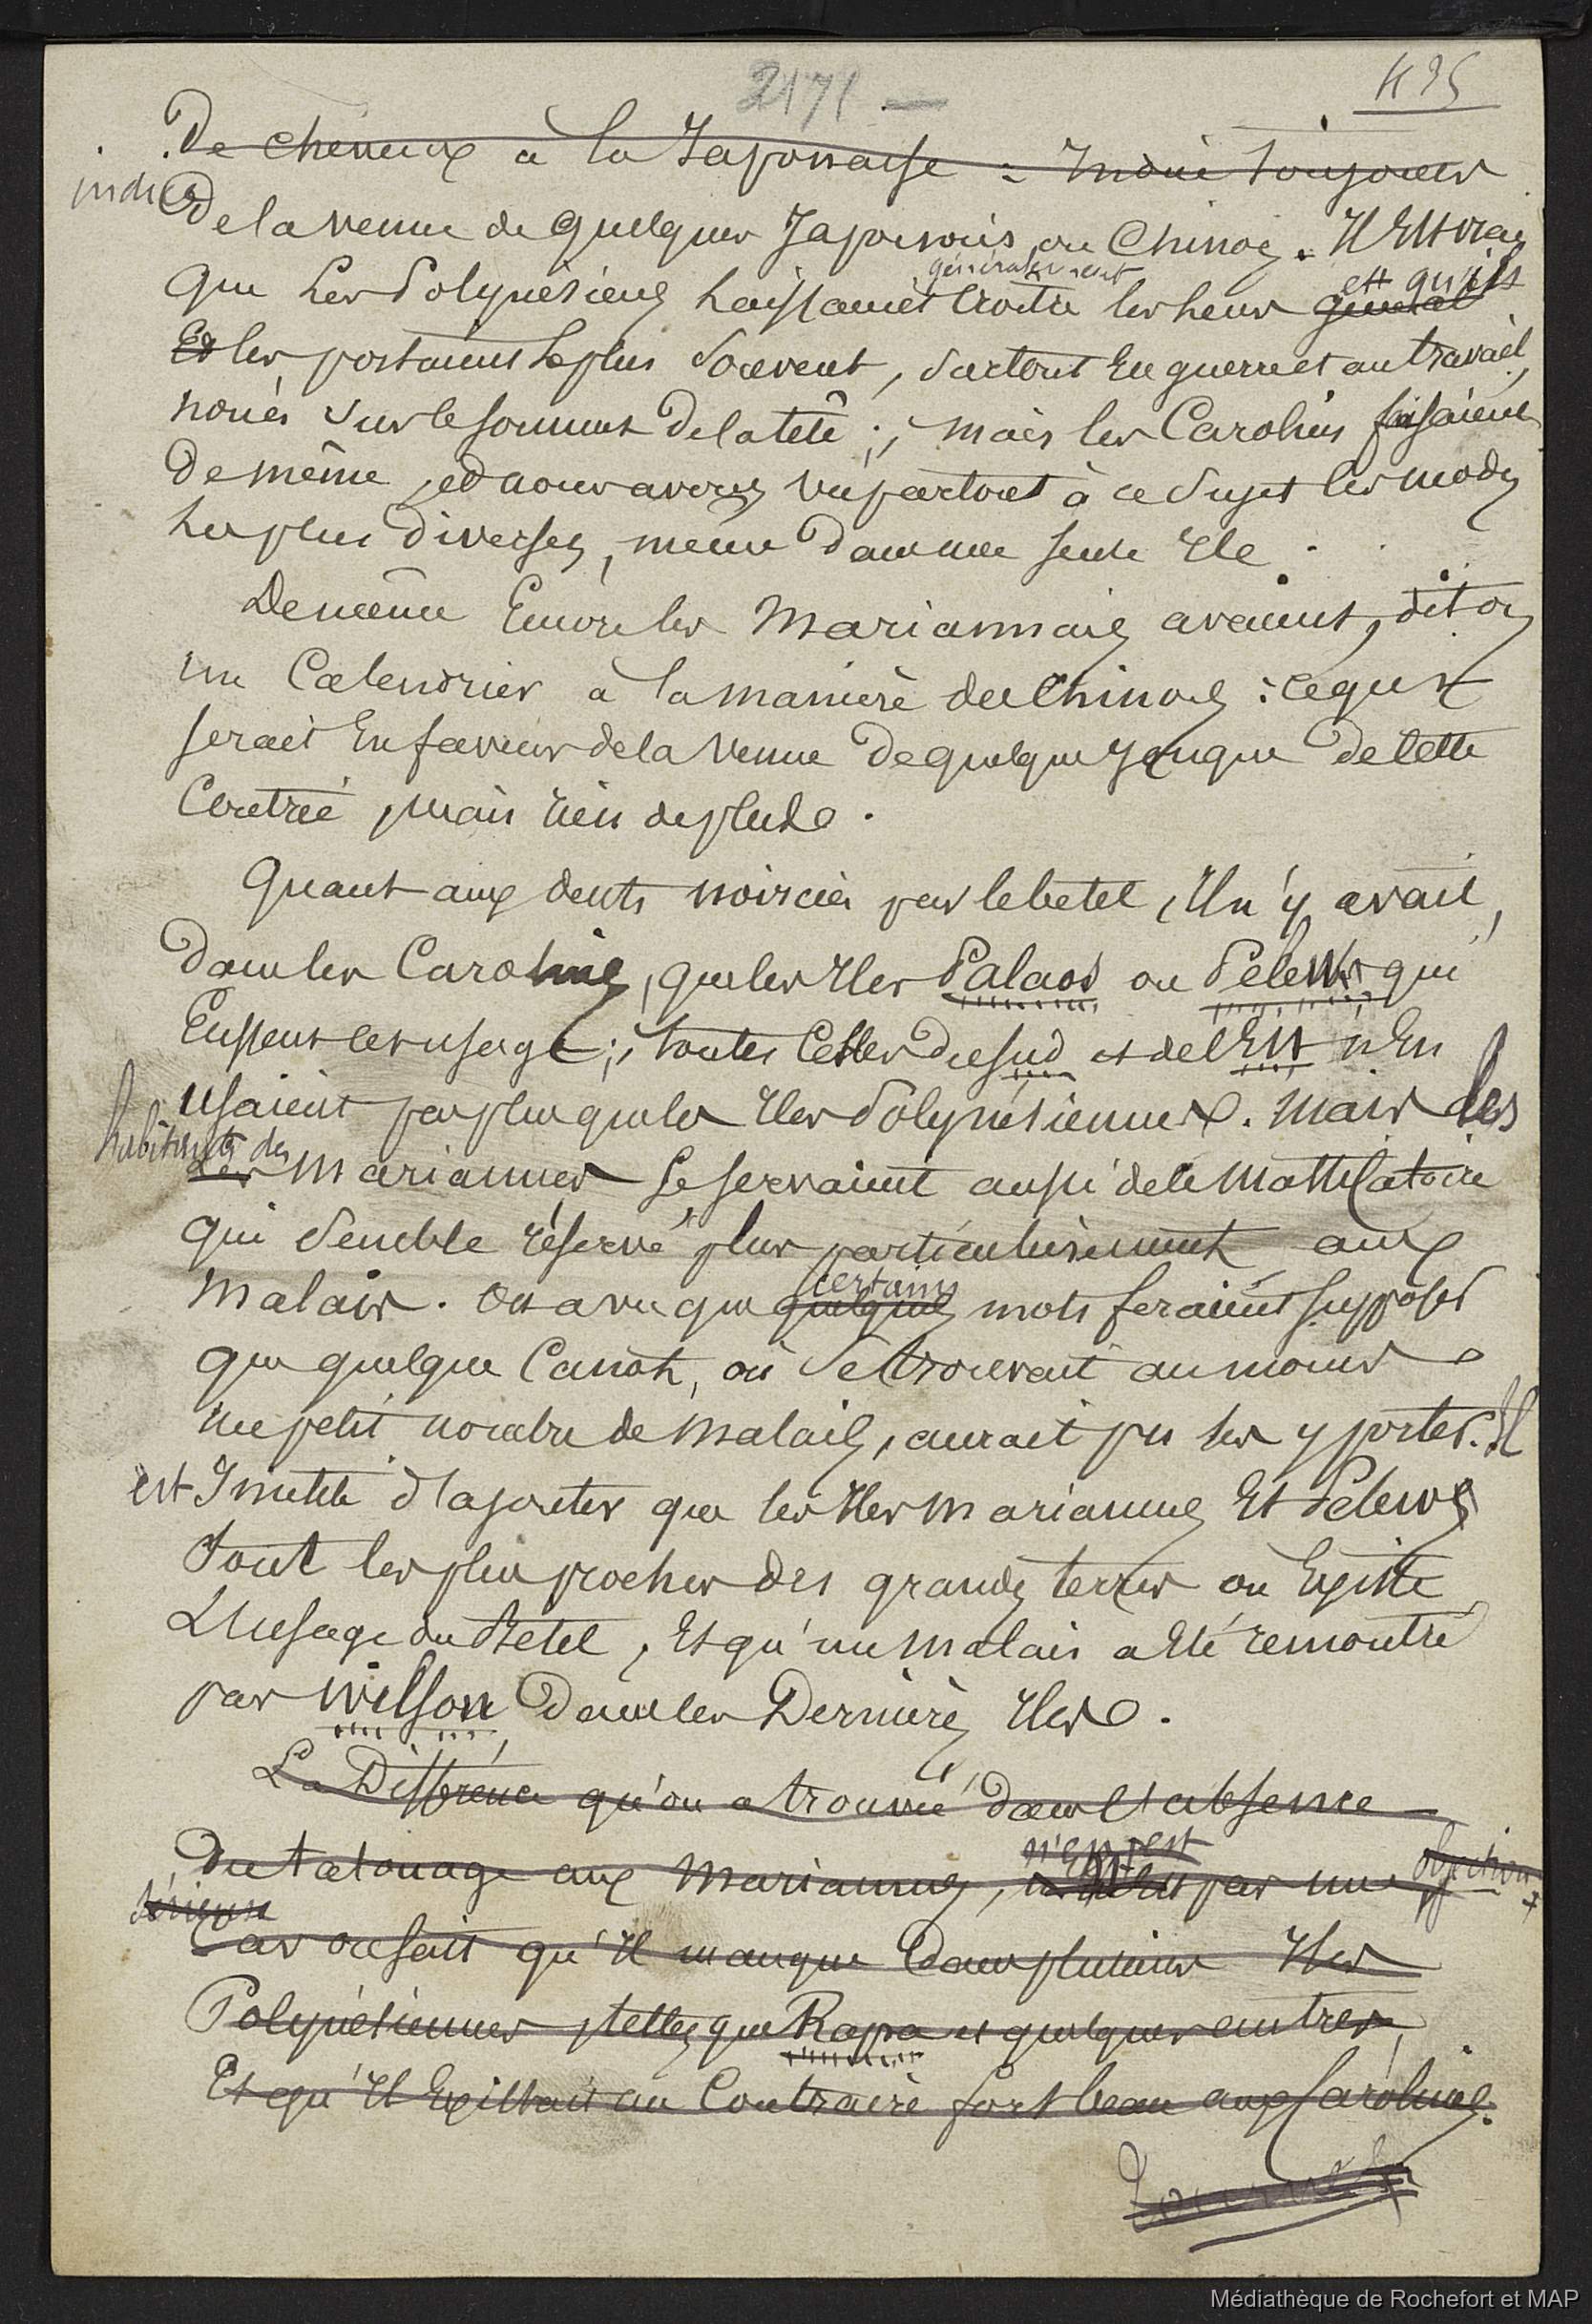 2171 —
495
De cheveux à la Japonaise : Indice toujours
indice
De la venue de quelques Japonnais ou Chinois. Il Est vrai
généralement
est qu'ils
que Les Polynésiens laissaient croitre les leurs général
Et les portaient le plus souvent, surtout En guerre et au travail,
noués sur le sommet de la tête ; mais les Carolins faisaient
De même, et nous avons vu partout à ce sujet les modes
les plus Diverses, même Dans une seule Ile.
De même Encore les Mariannais avaient, dit on,
un Calendrier à la manière des Chinois : ce qui
serait En faveur de la venue De quelque Jonque De cette
Contrée, mais rien de plus.
Quant aux dents noircies par le betel, Il n'y avait,
Dans les Carolines, que les Iles Palaos ou Pelew qui
Eussent cet usage ; toutes Celles du sud et de l'Est n'En
usaient pas plus que les Iles Polynésiennes. Mais les
habitants des
Les Mariannes se servaient aussi de ce Masticatoire
qui semble réservé plus particulièrement aux
certains
Malais. On a vu que quelques mots feraient supposer
que quelque Canot, où se trouvait au moins
un petit nombre de Malais, aurait pu les y porter. Il
est Inutile d'ajouter que les Iles Mariannes Et Pelew
sont les plus proches des grandes terres où Existe
L'usage du Betel, Et qu'un Malais a Eté rencontré
par Wilson Dans les Dernières Iles.
La Différence qu'on a trouvée dans l'absence
n'en est
Du tatouage aux Mariannes, pas une objection
sérieuse
Car on sait qu'Il manque Dans plusieurs Iles
Polynésiennes, telles que Rapa et quelques autres,
Et qu'Il Existait au Contraire fort beau aux Carolines.
Médiathèque de Rochefort et MAP